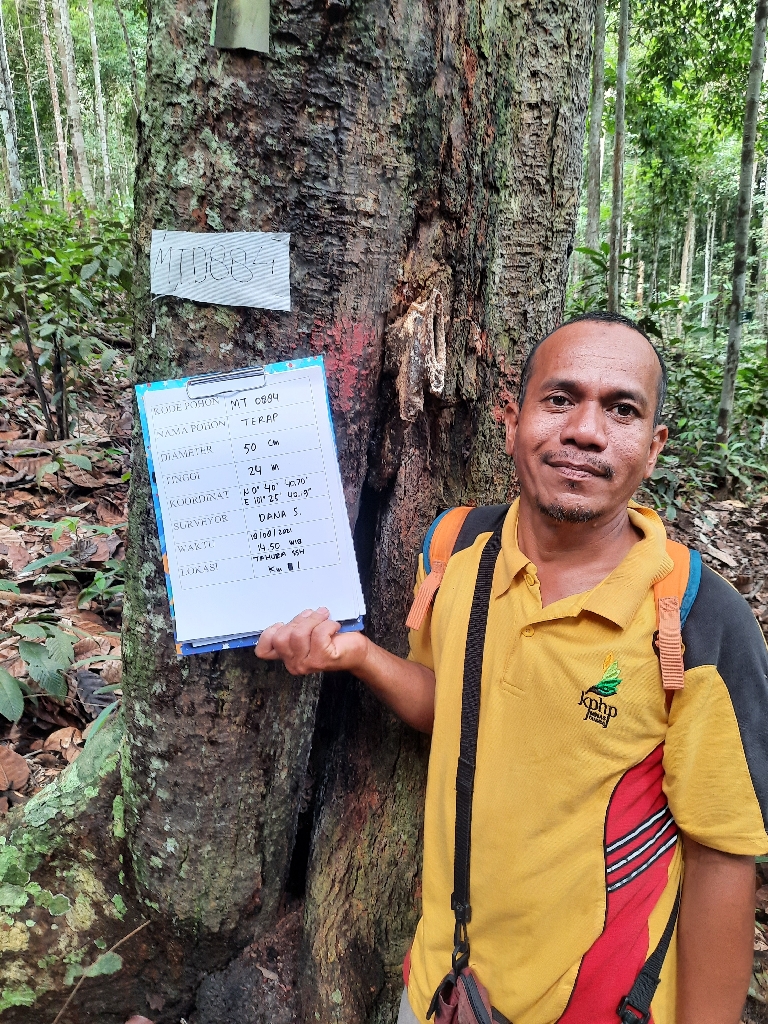 MT0884
KODE POHON MT 0884
NAMA POHON TERAP
DIAMETER 50 cm
TINGGI 24 m
KOORDINAT N 0° 40' 40.70"
E 101° 25' 40.9"
SURVEYOR DANA S.
WAKTU 18/08/2021
14.50 WIB
LOKASI TAHURA SSH
KM 1
kphp